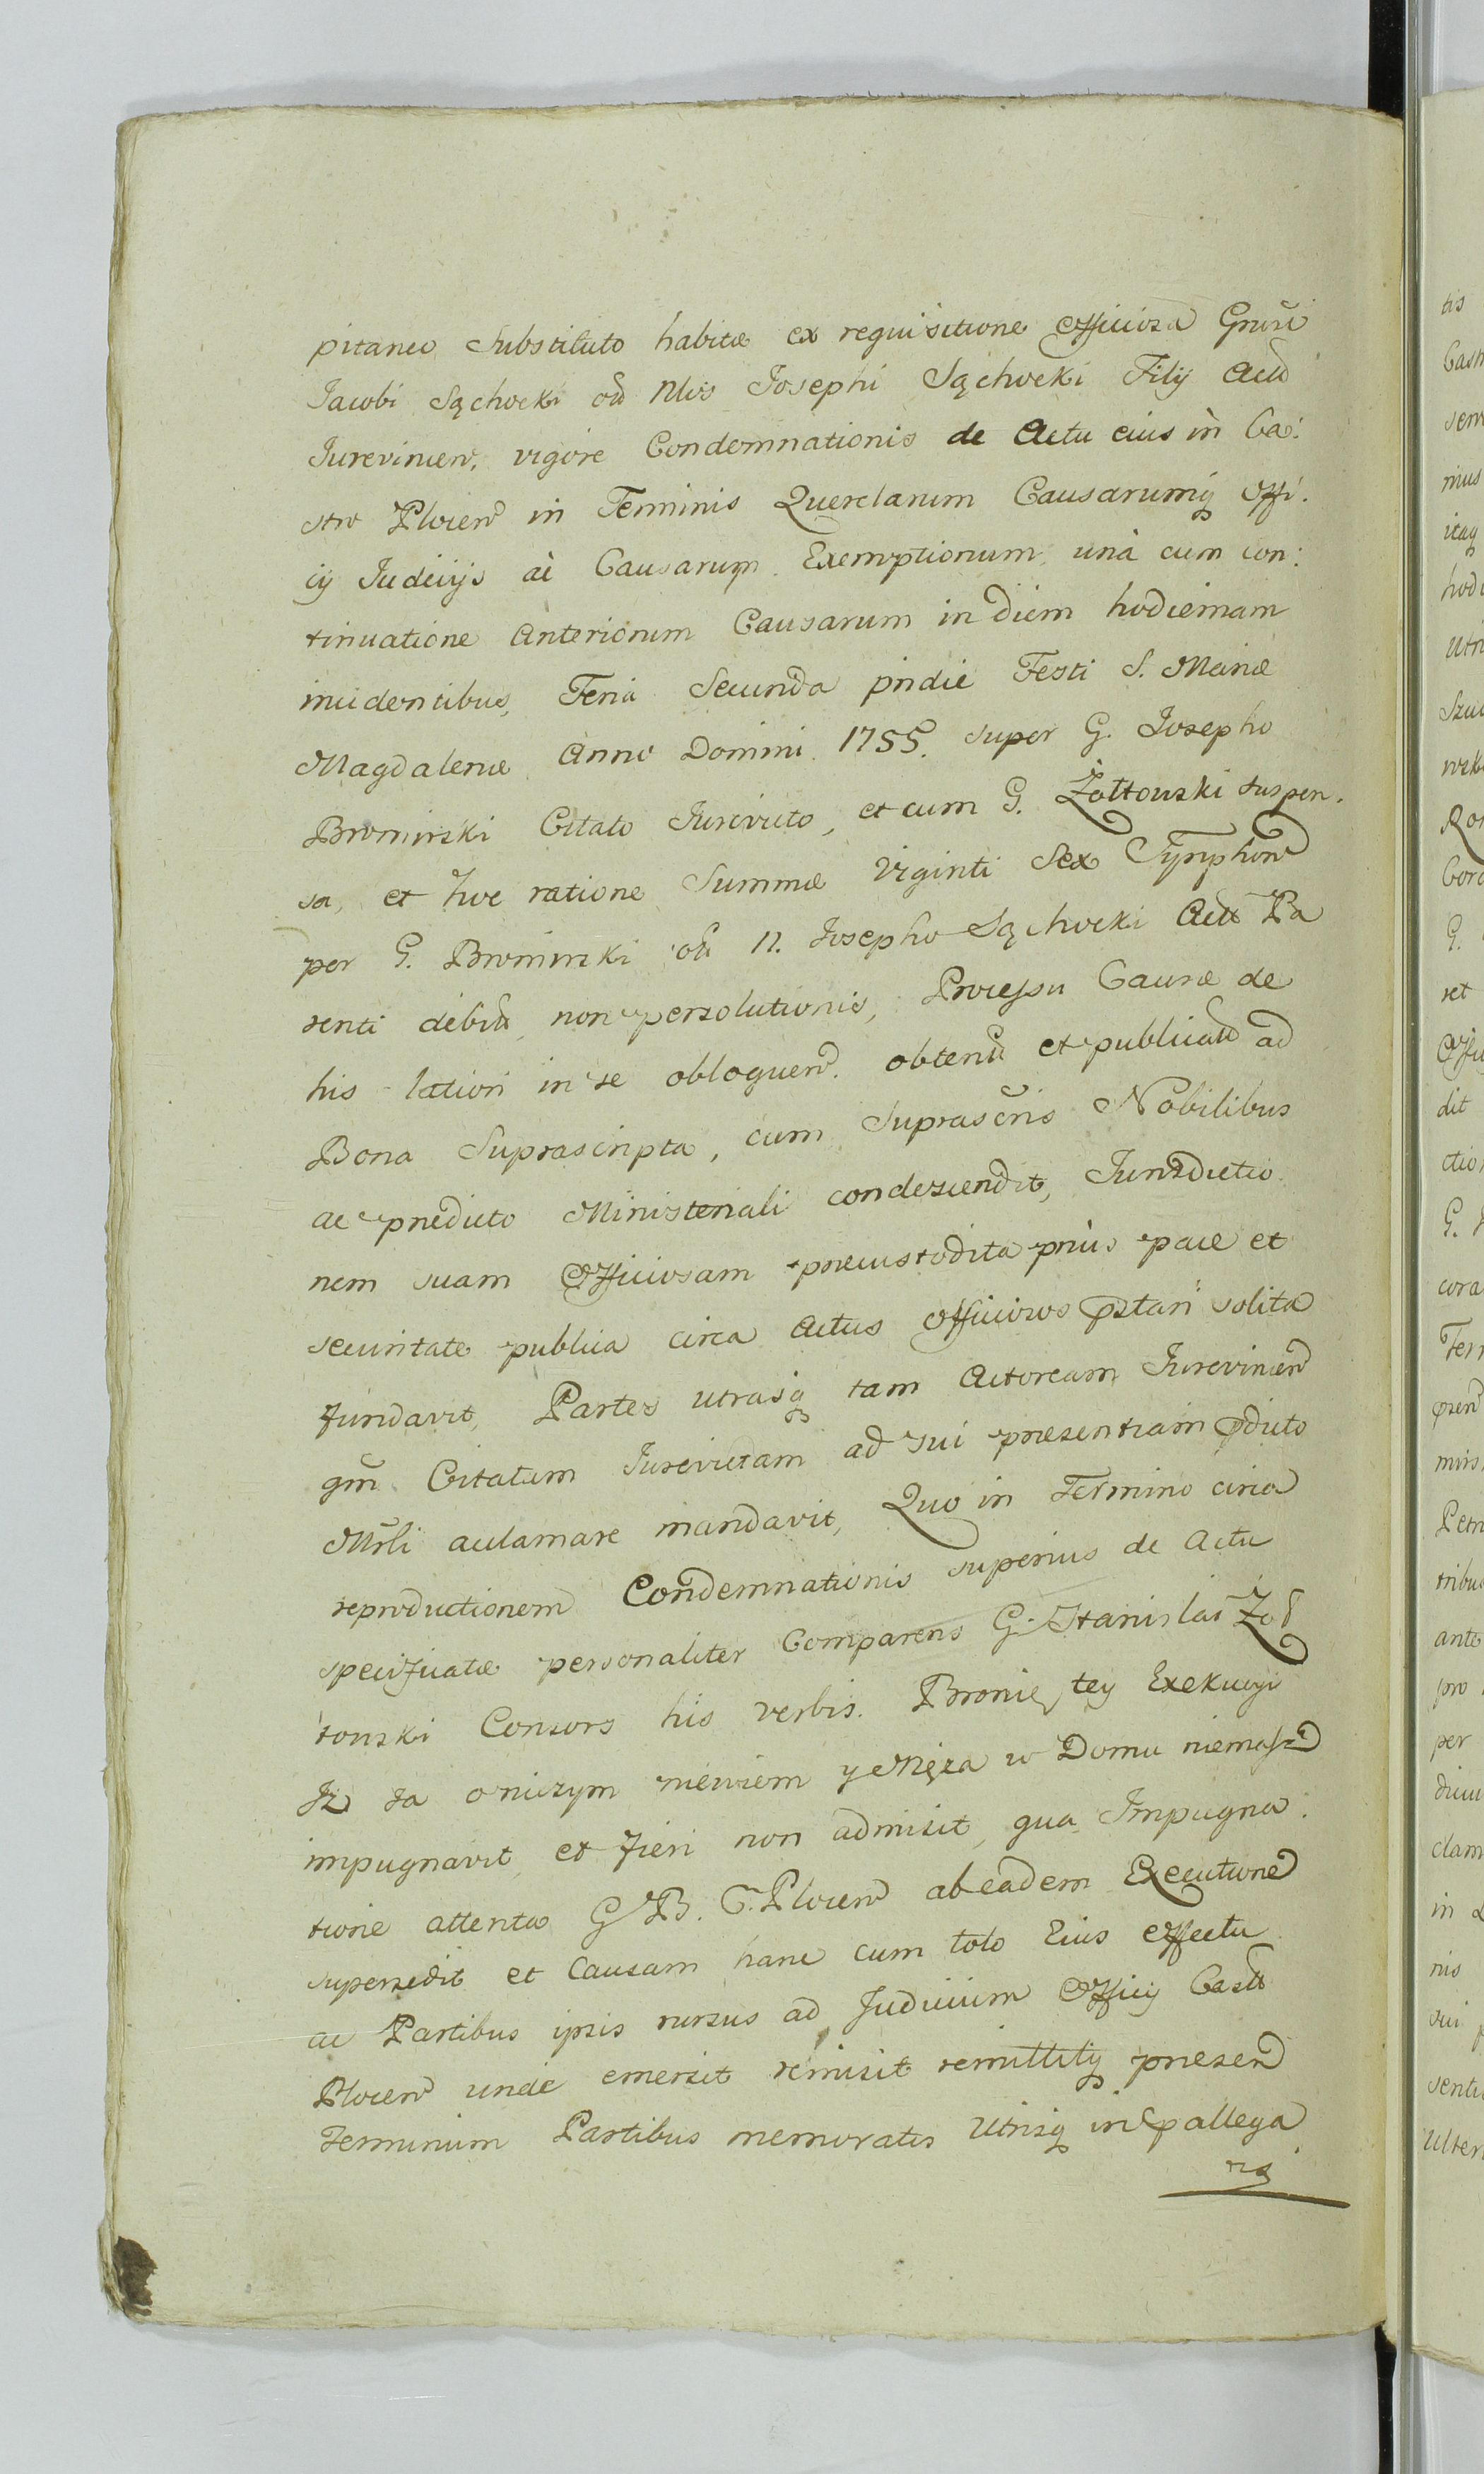 pitaneo Substituto habitæ ex requisitione Officiosa Grusi
Iacobi Sąchocki oū Nlis Josephi Sąchocki Filij Actū
Jurevincen, vigore Condemnationis de Actu eius in Ca:
stro Plocen in Terminis Querelarum Causarumq Offi:
cij Iudicijs ac Causarum Exemptionum, una cum con:
tinuatione Anteriorum Causarum in diem hodiernam
incidentibus, Feria Secunda pridie Festi S. Mariæ
Magdalenæ Anno Domini 1755. super G. Josepho
Bromirski Citato Jurevicto, et cum G. Żołtowski suspen:
sa, et hoc ratione Summæ Viginti Sex Tynphon
per G. Bromirski oū N. Josepho Sąchocki Actt Pa
renti debitt, non persolutionis, Processu Causæ de
his latiori in se obloquen. obtentt et publicatt ad
Bona Suprascripta, cum Suprascris Nobilibus
ac prædicto Ministeriali condescendit, Jurisdictio
nem suam Officiosam præcustodita prius pace et
securitate publica circa Actus Officiosos pstari solita
fundavit, Partes utrasq tam Actoream Jurevincen
qm Citatam Jurevictam ad sui præsentiam pdicto
Mrli acclamare mandavit, Quo in Termino circa
reproductionem Condemnationis superius de Actu
specificatæ personaliter Comparens G. Stanislai Żoł
towski Consors his verbis. Bronię tey Exekucyi
Iż Ia oniczym niewiem y Męża w Domu niemasz
impugnavit et fieri non admisit, qua Impugna:
tione attenta G B. C. Plocen ab eadem Executione
supersedit et Causam hanc cum toto Eius effectu
ac Partibus ipsis rursus ad Judicium Officij Castr
Plocen unde emersit remisit remittitq præsen
Terminum Partibus memoratis Utrisq in pallega
ris